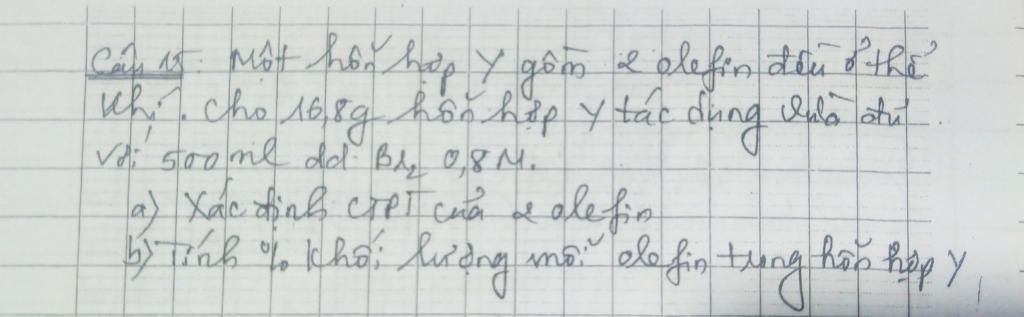 Câu 15: Một hỗn hợp Y gồm 2 olefin đều ở thể
khí. Cho 16,8g hỗn hợp Y tác dụng vừa đủ
với 500ml dd Br2 0,8M.
a) Xác định CTPT của 2 olefin
b) Tính % khối lượng mỗi olefin trung hỗn hợp Y